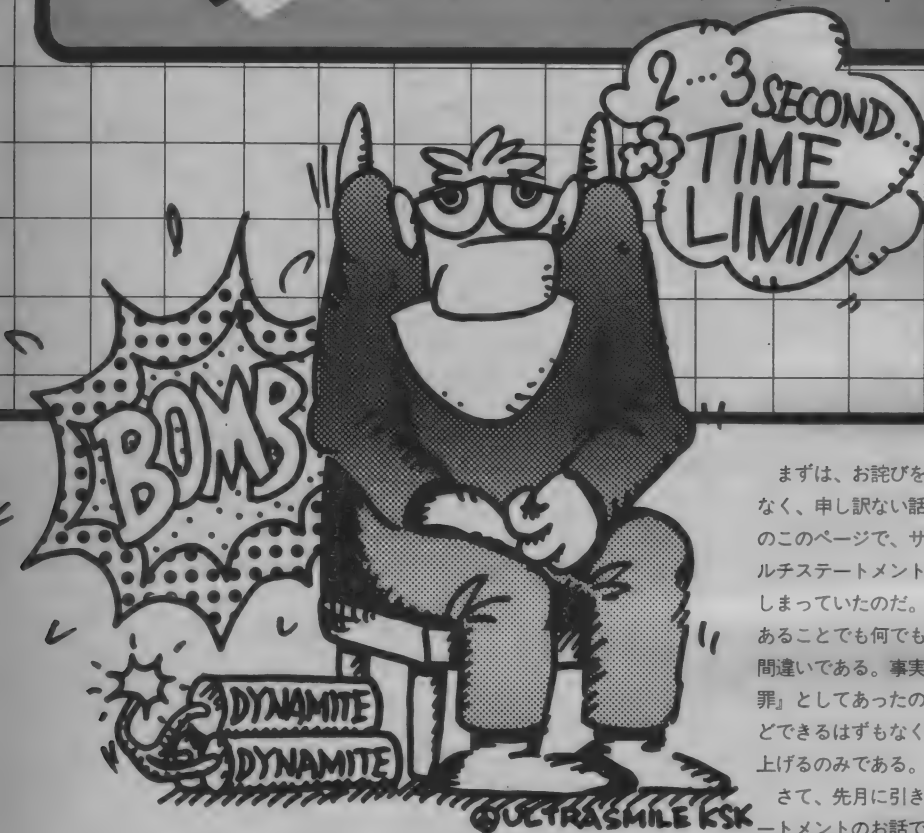 2…3 SECOND…
TIME
LIMIT
BOMB
DYNAMITE
DYNAMITE
©ULTRASMILE KSK
まずは、お詫びを
なく、申し訳ない話
のこのページで、サ
ルチステートメント
しまっていたのだ。
あることでも何でも
間違いである。事実
罪』としてあったの
どできるはずもなく
上げるのみである。
さて、先月に引き
ートメントのお話で